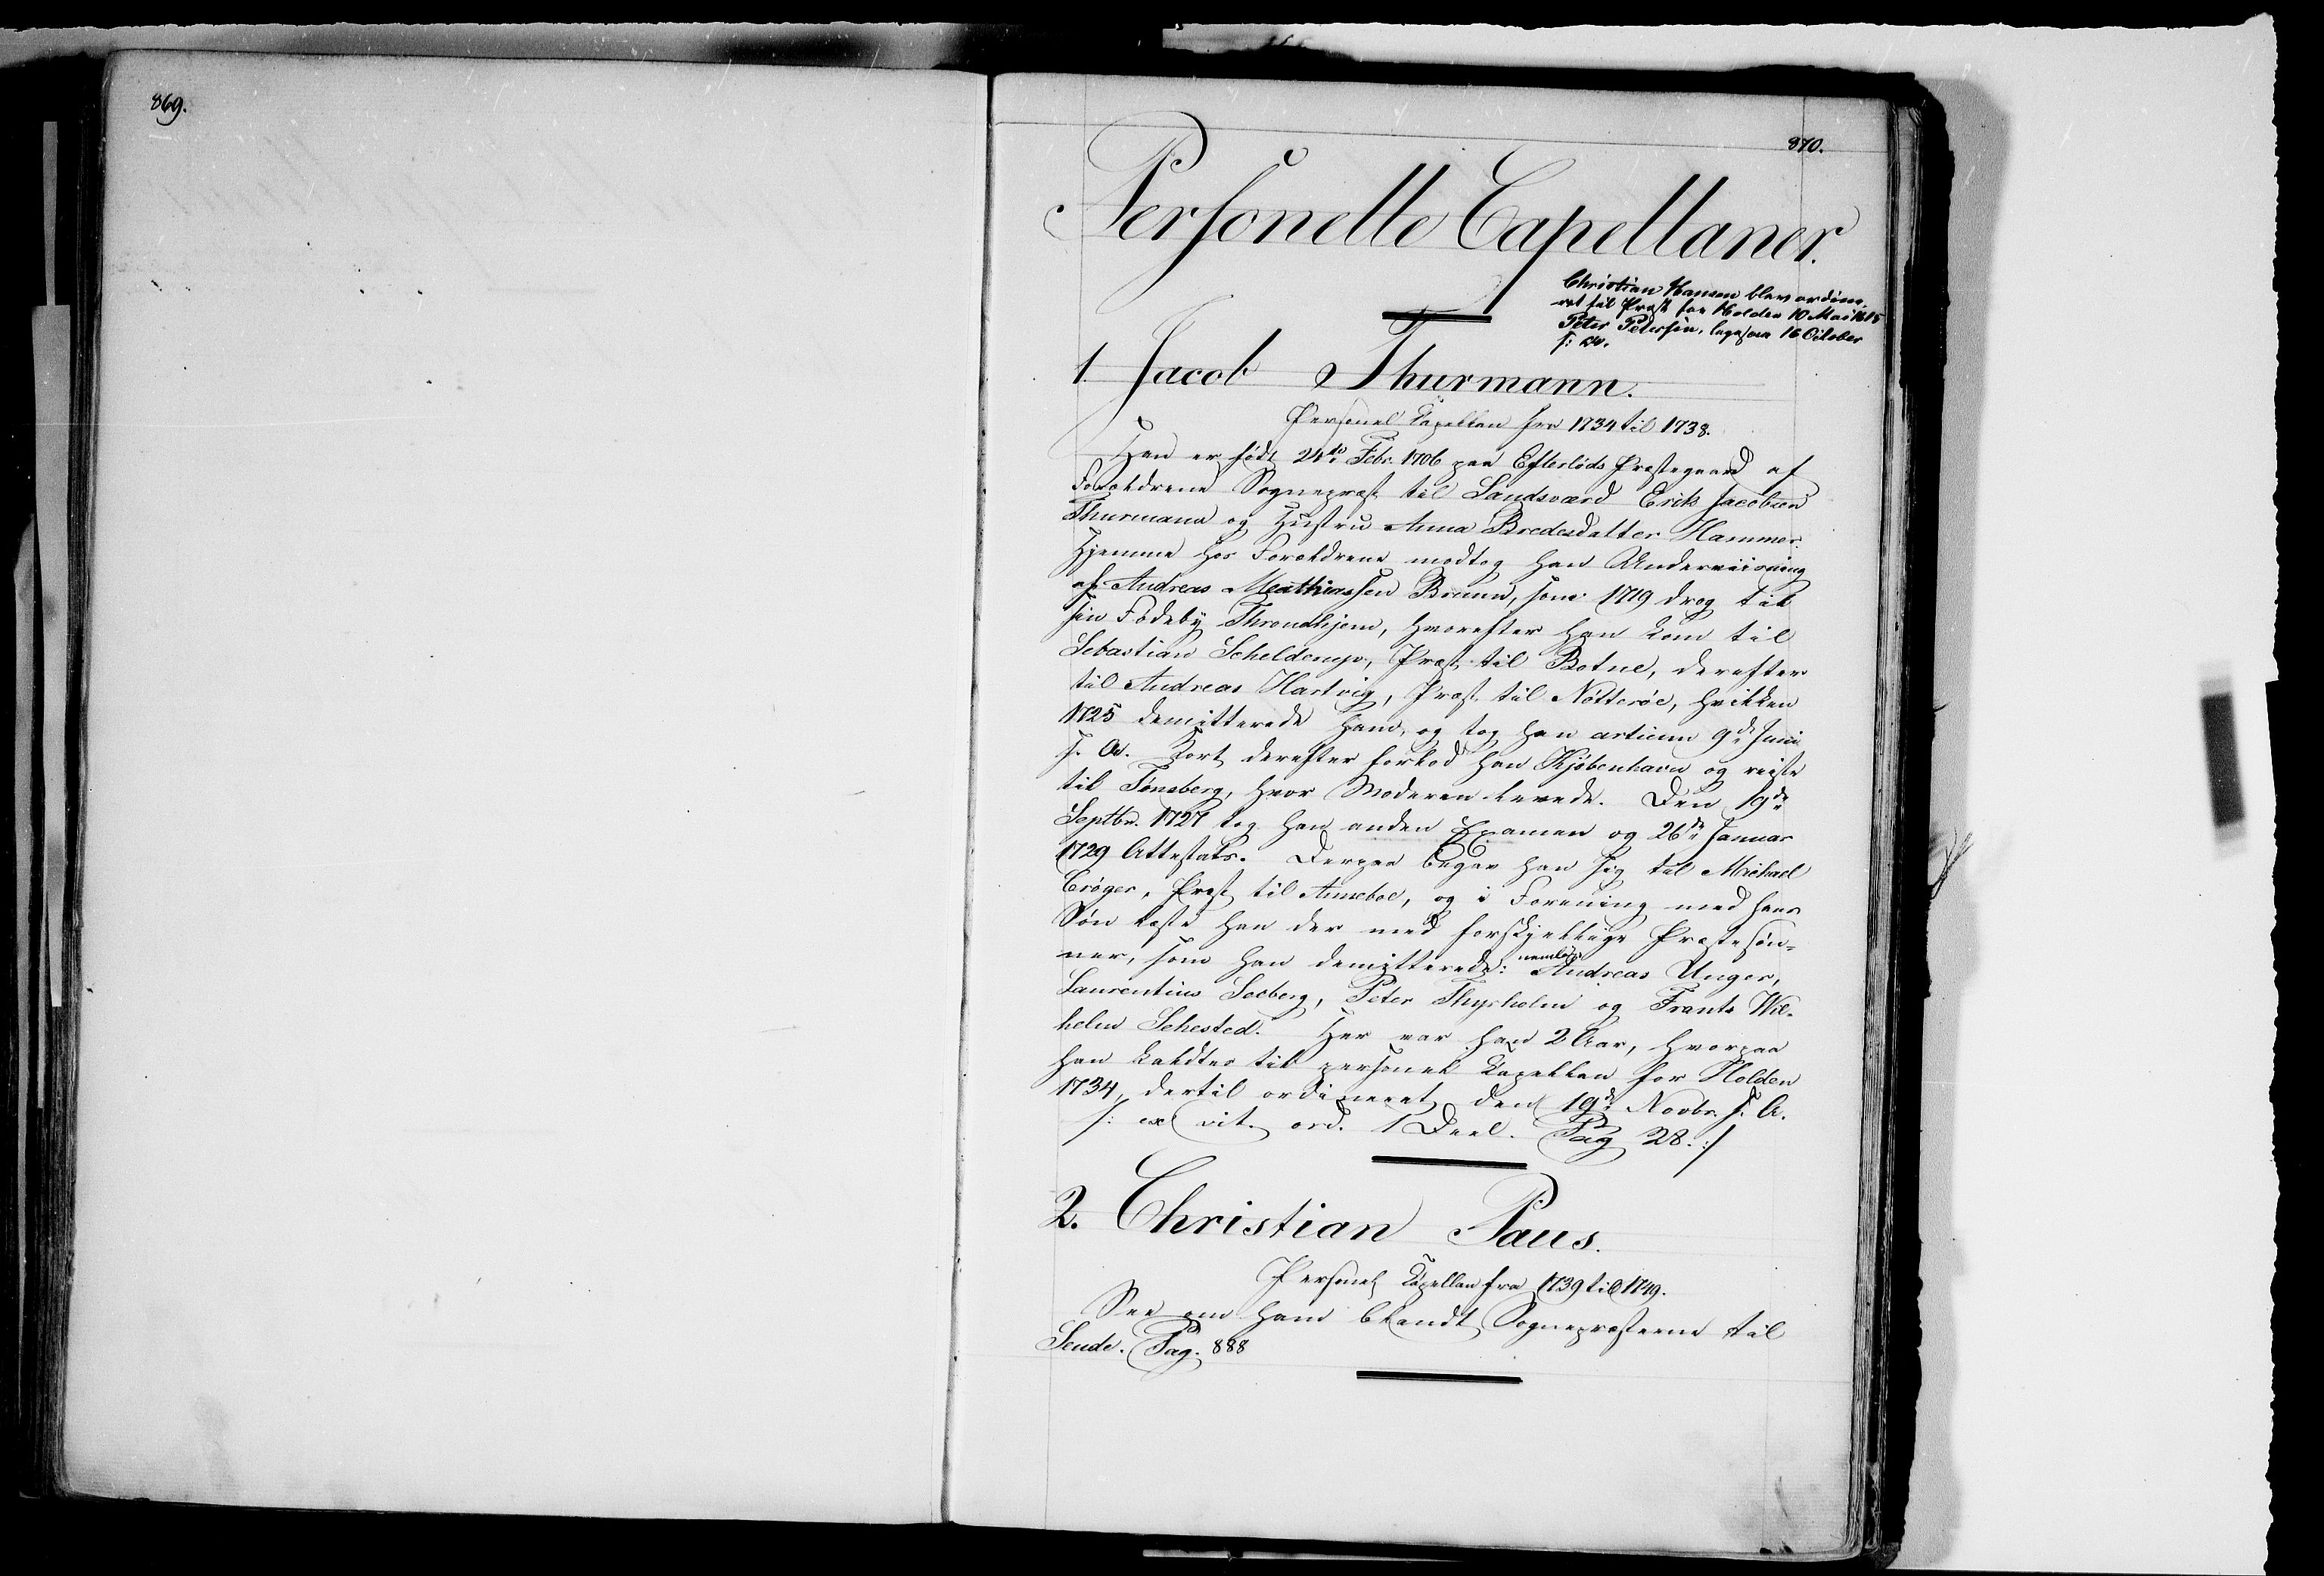 869.
870.
Personelle Capellaner.
Christian Hansen blev ordine
ret til Præst for Holden 10 Mai 1615
Peter Petersøn, ligesaa 16 October
s: A.
1. Jacob Thurmann.
Personel Kapellan fra 1734 til 1738.
Han er født 24de Febr. 1706 paa Efteløds Præstegaard af
Forældrene Sognepræst til Sandsværd Erik Jacobsen
Thurmann og Hustru Anna Bredesdatter Hammer.
Hjemme hos Forældrene modtog han Underviisning
af Andreas Mathiessen Bruun, som 1719 drog til
sin Fødeby Throndhjem, hvorefter han kom til
Sebastian Schelderup, Præst til Botne, derefter
til Andreas Hartvig, Præst til Nøtterøe, hvilken
1725 demitterede ham, og tog han artium 9de Juni
s. A. Kort derefter forlod han Kjøbenhavn og reiste
til Tønsberg, hvor Moderen levede. Den 19de
Septbr. 1727 tog han anden Examen og 26de Januar
1729 Attestats. Derpaa begav han sig til Michael
Crøger, Præst til Anneboe, og i Forening med hans
Søn læste han der med forskjellige Præstesøn=
ner, som han demitterede: nemlig Andreas Unger,
Laurentius Seeberg, Peter Thyrholm og Frants Wil-
helm Sehested. Her var han 2 Aar, hvorpaa
han kaldtes til personel Kapellan for Holden
1734, dertil ordineret den 19de Novbr. s. A.
/: ex vit. ord. 1 Deel. Pag 28. :/
2. Christian Paus.
Personel Kapellan fra 1739 til 1749.
See om ham blandt Sognepræsterne til
Seude. Pag. 888